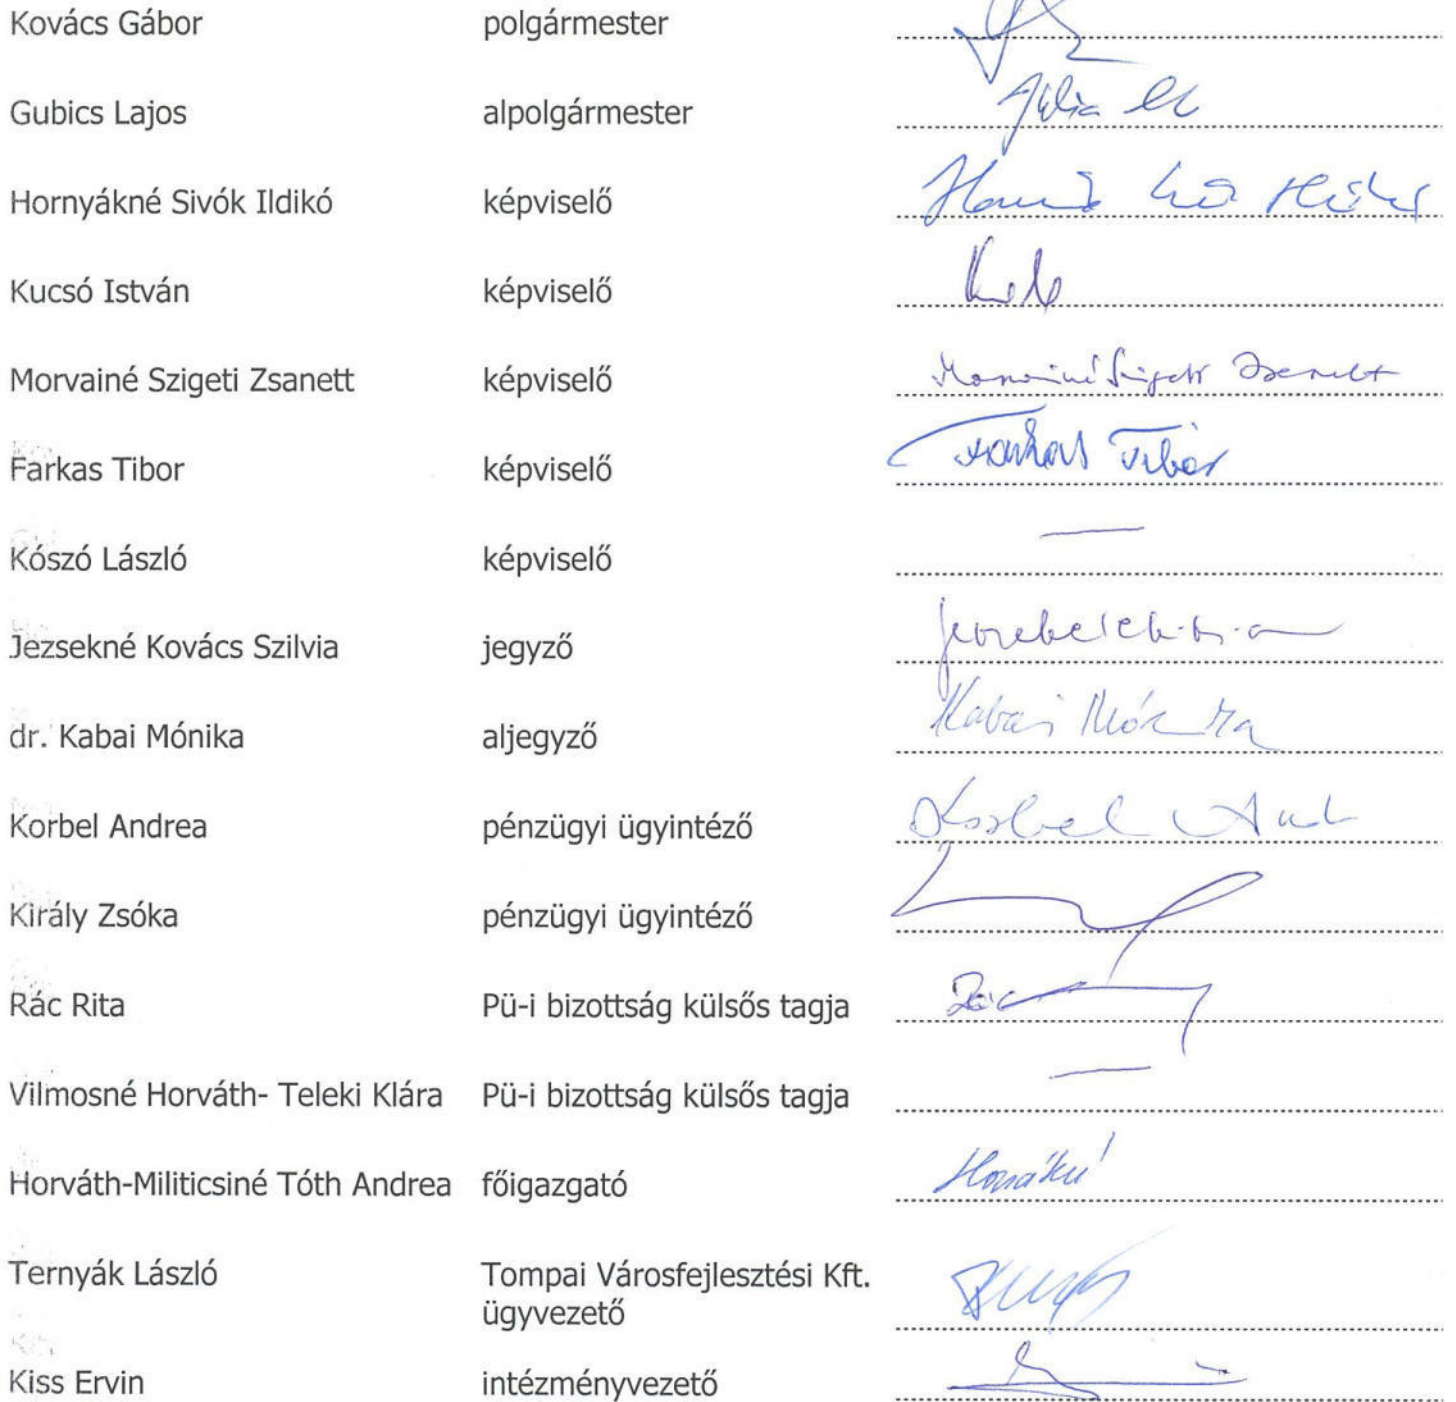 Kovács Gábor polgármester
Gubics Lajos alpolgármester
Hornyákné Sivók Ildikó képviselő
Kucsó István képviselő
Morvainé Szigeti Zsanett képviselő
Farkas Tibor képviselő Farkas Tibor
Kószó László képviselő
Jezsekné Kovács Szilvia jegyző
dr. Kabai Mónika aljegyző Kabai Mónika
Korbel Andrea pénzügyi ügyintéző Korbel
Király Zsóka pénzügyi ügyintéző
Rác Rita Pü-i bizottság külsős tagja
Vilmosné Horváth- Teleki Klára Pü-i bizottság külsős tagja
Horváth-Militicsiné Tóth Andrea főigazgató
Ternyák László Tompai Városfejlesztési Kft.
ügyvezető
Kiss Ervin intézményvezető